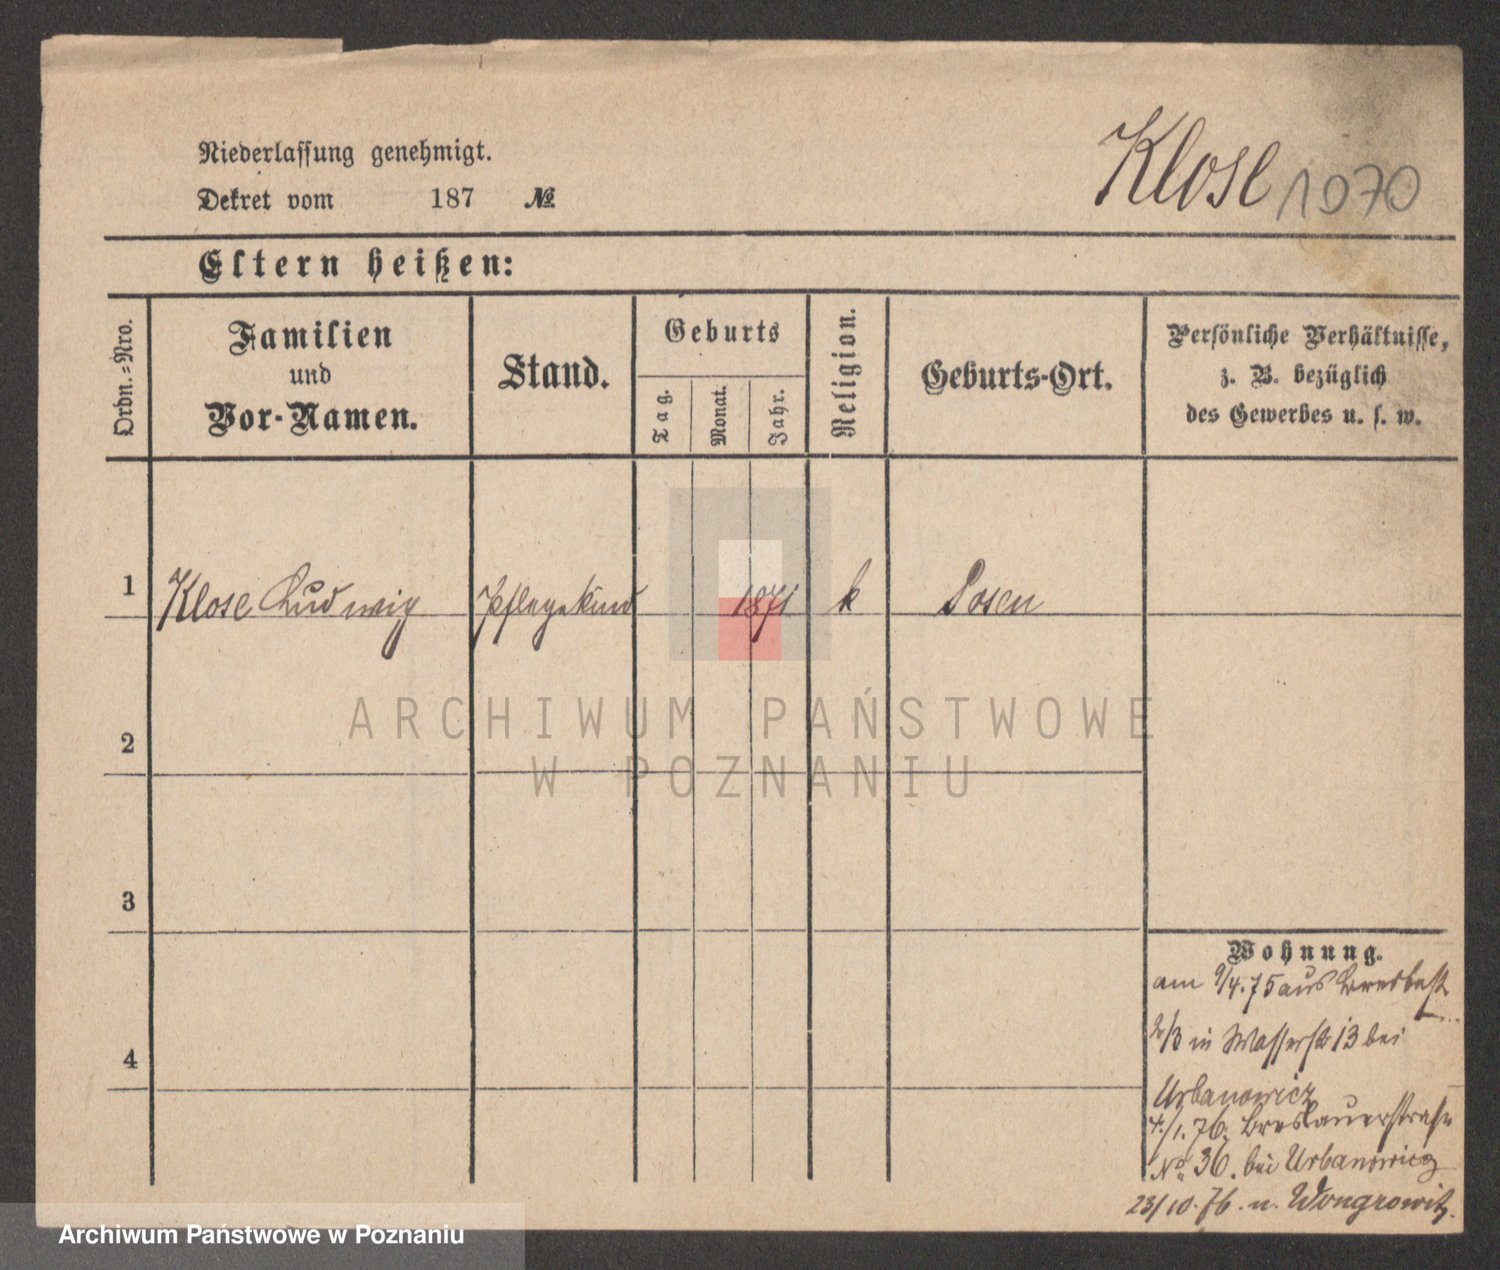 Klose 1070
Niederlassung genehmigt.
Dekret vom 187 №
Eltern heißen:
Ordn.-Nro.
Familien
und
Vor-Namen.
Stand.
Geburts
Tag.
Monat.
Jahr.
Religion.
Geburts-Ort.
Persönliche Verhältnisse,
z. B. bezüglich
des Gewerbes u. s. w.
1 Klose Ludwig Pflegekind 1871 k Posen
2
3
4
Wohnung.
am 9/4.75 aus
in Wasserstr 13 bei
Urbanowicz
4./1.76. Breslauerstraße
No 36. bei Urbanowicz
23/10.76. n. Wongrowitz.
ARCHIWUM PAŃSTWOWE
W POZNANIU
Archiwum Państwowe w Poznaniu